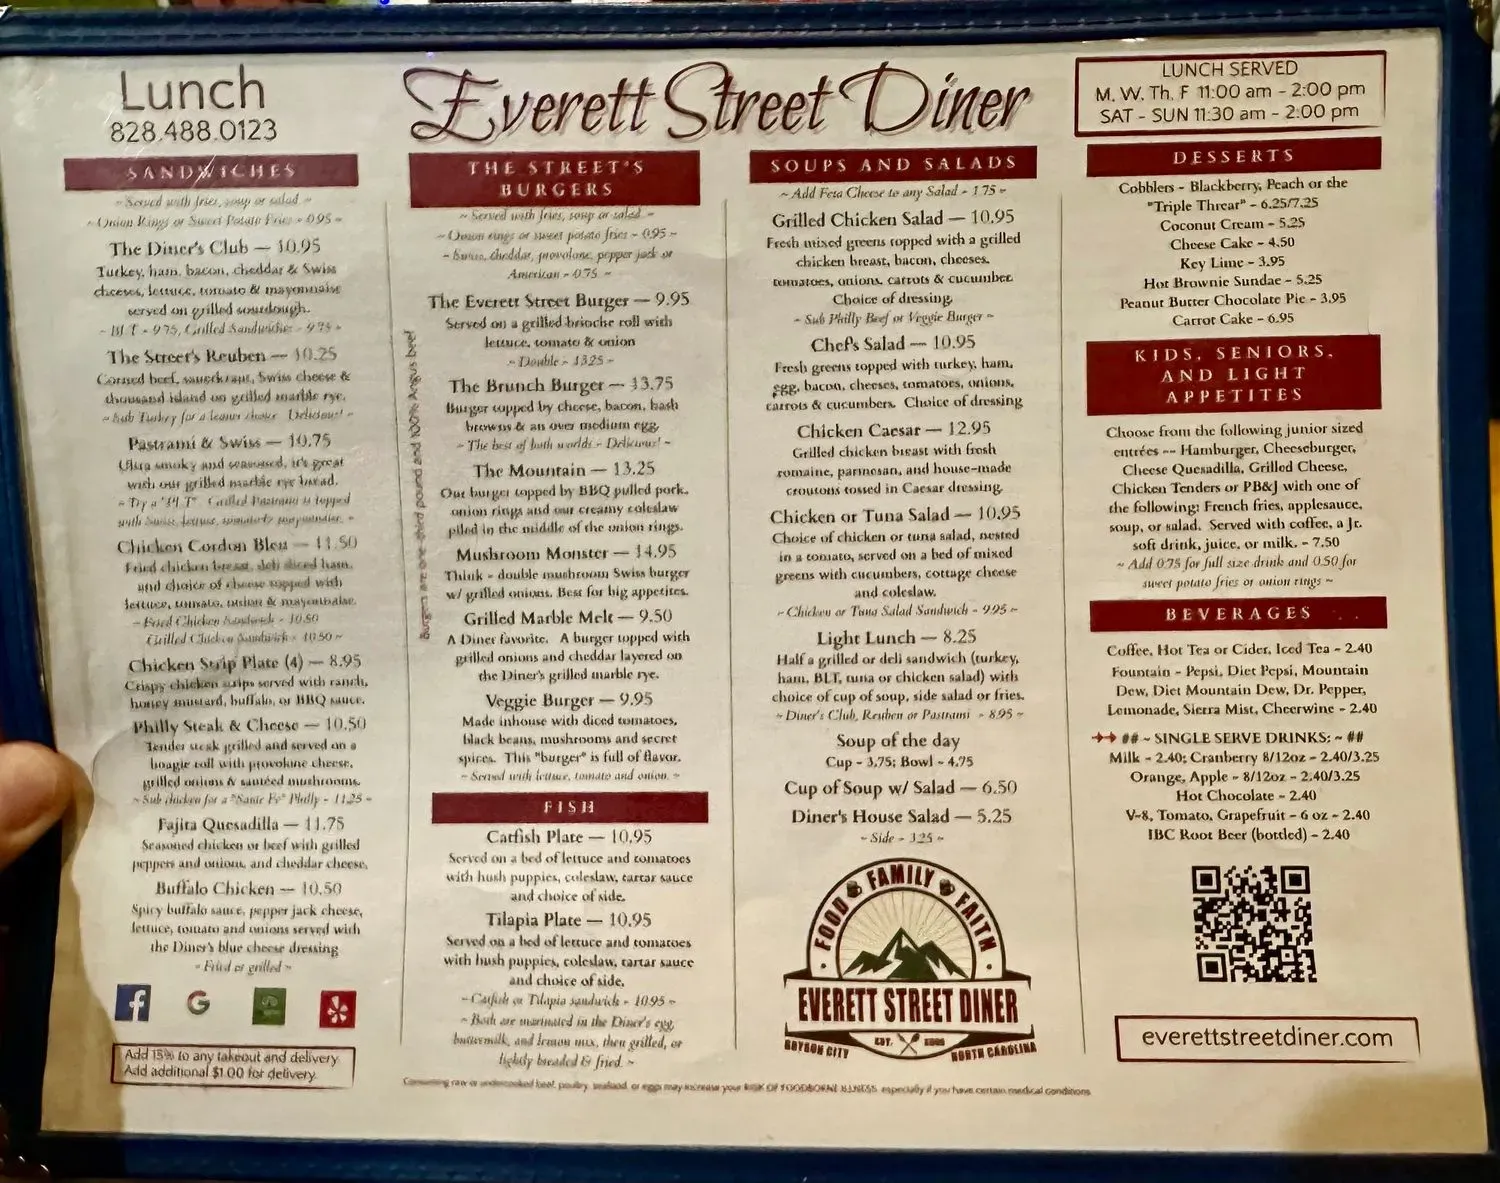 Lunch
828.488.0123
Everett Street Diner
LUNCH SERVED
M. W. Th. F 11:00 am - 2:00 pm
SAT - SUN 11:30 am - 2:00 pm
SANDWICHES
~ Served with fries, soup or salad ~
~ Onion Rings or Sweet Potato Fries - 0.95 ~
The Diner's Club — 10.95
Turkey, ham, bacon, cheddar & Swiss
cheeses, lettuce, tomato & mayonnaise
served on grilled sourdough.
~ BLT - 9.75, Grilled Sandwiches - 9.75 ~
The Street's Reuben — 10.25
Corned beef, sauerkraut, Swiss cheese &
thousand island on grilled marble rye.
~ Sub Turkey for a leaner choice Delicious! ~
Pastrami & Swiss — 10.75
Ultra smoky and seasoned, it's great
with our grilled marble rye bread.
~ Try a "PLT" Grilled Pastrami is topped
with Swiss, lettuce, tomato & mayonnaise. ~
Chicken Cordon Bleu — 11.50
Fried chicken breast, deli sliced ham,
and choice of cheese topped with
lettuce, tomato, onion & mayonnaise.
~ Fried Chicken Sandwich - 10.50
Grilled Chicken Sandwich - 10.50 ~
Chicken Strip Plate (4) — 8.95
Crispy chicken strips served with ranch,
honey mustard, buffalo, or BBQ sauce.
Philly Steak & Cheese — 10.50
Tender steak grilled and served on a
hoagie roll with provolone cheese,
grilled onions & sautéed mushrooms.
~ Sub chicken for a "Sante Fe" Philly - 11.25 ~
Fajita Quesadilla — 11.75
Seasoned chicken or beef with grilled
peppers and onions, and cheddar cheese.
Buffalo Chicken — 10.50
Spicy buffalo sauce, pepper jack cheese,
lettuce, tomato and onions served with
the Diner's blue cheese dressing
~ Fried or grilled ~
f
G
Add 15% to any takeout and delivery
Add additional $1.00 for delivery.
THE STREET'S
BURGERS
~ Served with fries, soup or salad ~
~ Onion rings or sweet potato fries - 0.95 ~
~ Swiss, cheddar, provolone, pepper jack or
American - 0.75 ~
Burgers are one-third pound and 100% Angus beef
The Everett Street Burger — 9.95
Served on a grilled brioche roll with
lettuce, tomato & onion
~ Double - 13.25 ~
The Brunch Burger — 13.75
Burger topped by cheese, bacon, hash
browns & an over medium egg.
~ The best of both worlds - Delicious! ~
The Mountain — 13.25
Our burger topped by BBQ pulled pork,
onion rings and our creamy coleslaw
piled in the middle of the onion rings.
Mushroom Monster — 14.95
Think - double mushroom Swiss burger
w/ grilled onions. Best for big appetites.
Grilled Marble Melt — 9.50
A Diner favorite. A burger topped with
grilled onions and cheddar layered on
the Diner's grilled marble rye.
Veggie Burger — 9.95
Made inhouse with diced tomatoes,
black beans, mushrooms and secret
spices. This "burger" is full of flavor.
~ Served with lettuce, tomato and onion. ~
FISH
Catfish Plate — 10.95
Served on a bed of lettuce and tomatoes
with hush puppies, coleslaw, tartar sauce
and choice of side.
Tilapia Plate — 10.95
Served on a bed of lettuce and tomatoes
with hush puppies, coleslaw, tartar sauce
and choice of side.
~ Catfish or Tilapia sandwich - 10.95 ~
~ Both are marinated in the Diner's egg,
buttermilk, and lemon mix, then grilled, or
lightly breaded & fried. ~
SOUPS AND SALADS
~ Add Feta Cheese to any Salad - 1.75 ~
Grilled Chicken Salad — 10.95
Fresh mixed greens topped with a grilled
chicken breast, bacon, cheeses,
tomatoes, onions, carrots & cucumber.
Choice of dressing.
~ Sub Philly Beef or Veggie Burger ~
Chef's Salad — 10.95
Fresh greens topped with turkey, ham,
egg, bacon, cheeses, tomatoes, onions,
carrots & cucumbers. Choice of dressing
Chicken Caesar — 12.95
Grilled chicken breast with fresh
romaine, parmesan, and house-made
croutons tossed in Caesar dressing.
Chicken or Tuna Salad — 10.95
Choice of chicken or tuna salad, nested
in a tomato, served on a bed of mixed
greens with cucumbers, cottage cheese
and coleslaw.
~ Chicken or Tuna Salad Sandwich - 9.95 ~
Light Lunch — 8.25
Half a grilled or deli sandwich (turkey,
ham, BLT, tuna or chicken salad) with
choice of cup of soup, side salad or fries.
~ Diner's Club, Reuben or Pastrami - 8.95 ~
Soup of the day
Cup - 3.75; Bowl - 4.75
Cup of Soup w/ Salad — 6.50
Diner's House Salad — 5.25
~ Side - 3.25 ~
FOOD FAMILY FAITH
EVERETT STREET DINER
BRYSON CITY EST. NORTH CAROLINA
DESSERTS
Cobblers - Blackberry, Peach or the
"Triple Threat" - 6.25/7.25
Coconut Cream - 5.25
Cheese Cake - 4.50
Key Lime - 3.95
Hot Brownie Sundae - 5.25
Peanut Butter Chocolate Pie - 3.95
Carrot Cake - 6.95
KIDS, SENIORS,
AND LIGHT
APPETITES
Choose from the following junior sized
entrées -- Hamburger, Cheeseburger,
Cheese Quesadilla, Grilled Cheese,
Chicken Tenders or PB&J with one of
the following: French fries, applesauce,
soup, or salad. Served with coffee, a Jr.
soft drink, juice, or milk. - 7.50
~ Add 0.75 for full size drink and 0.50 for
sweet potato fries or onion rings ~
BEVERAGES
Coffee, Hot Tea or Cider, Iced Tea - 2.40
Fountain - Pepsi, Diet Pepsi, Mountain
Dew, Diet Mountain Dew, Dr. Pepper,
Lemonade, Sierra Mist, Cheerwine - 2.40
## ~ SINGLE SERVE DRINKS: ~ ##
Milk - 2.40; Cranberry 8/12oz - 2.40/3.25
Orange, Apple - 8/12oz - 2.40/3.25
Hot Chocolate - 2.40
V-8, Tomato, Grapefruit - 6 oz - 2.40
IBC Root Beer (bottled) - 2.40
everettstreetdiner.com
Consuming raw or undercooked beef, poultry, seafood, or eggs may increase your RISK OF FOODBORNE ILLNESS, especially if you have certain medical conditions.